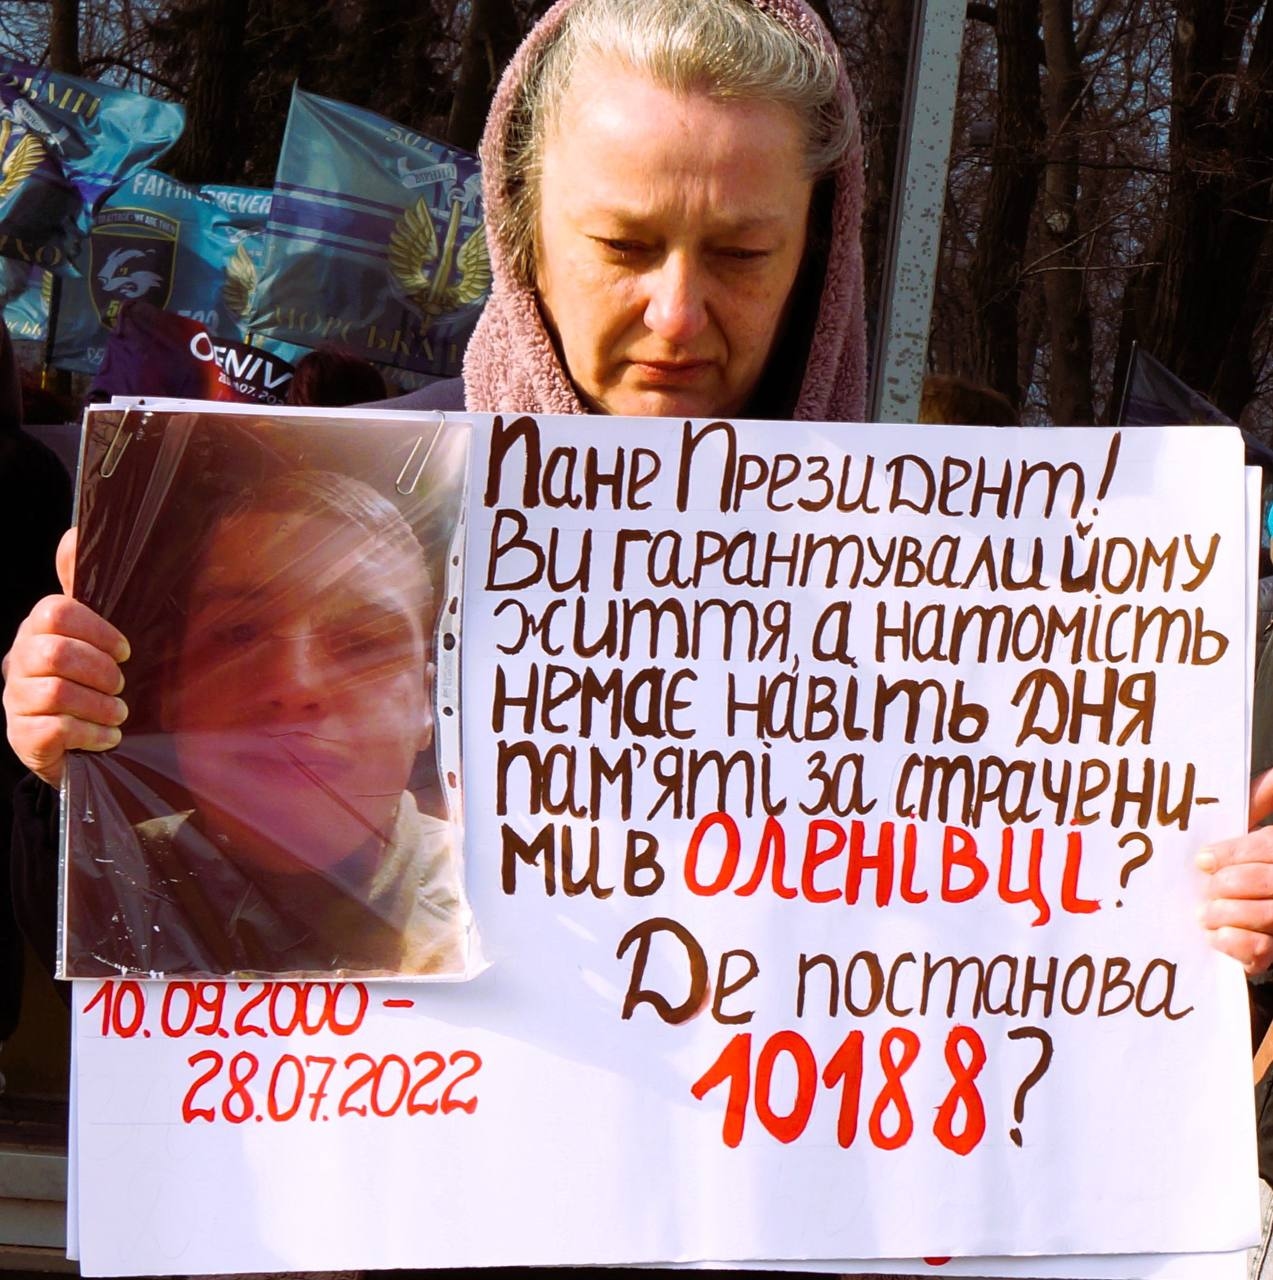 FAITH
OLENIV
МОРСЬКА
Пане Президент!
Ви гарантували йому
життя, а натомість
немає навіть Дня
пам'яті за страчени-
ми в ОЛЕНІВЦІ?
Де постанова
10188?
10.09.2000 -
28.07.2022